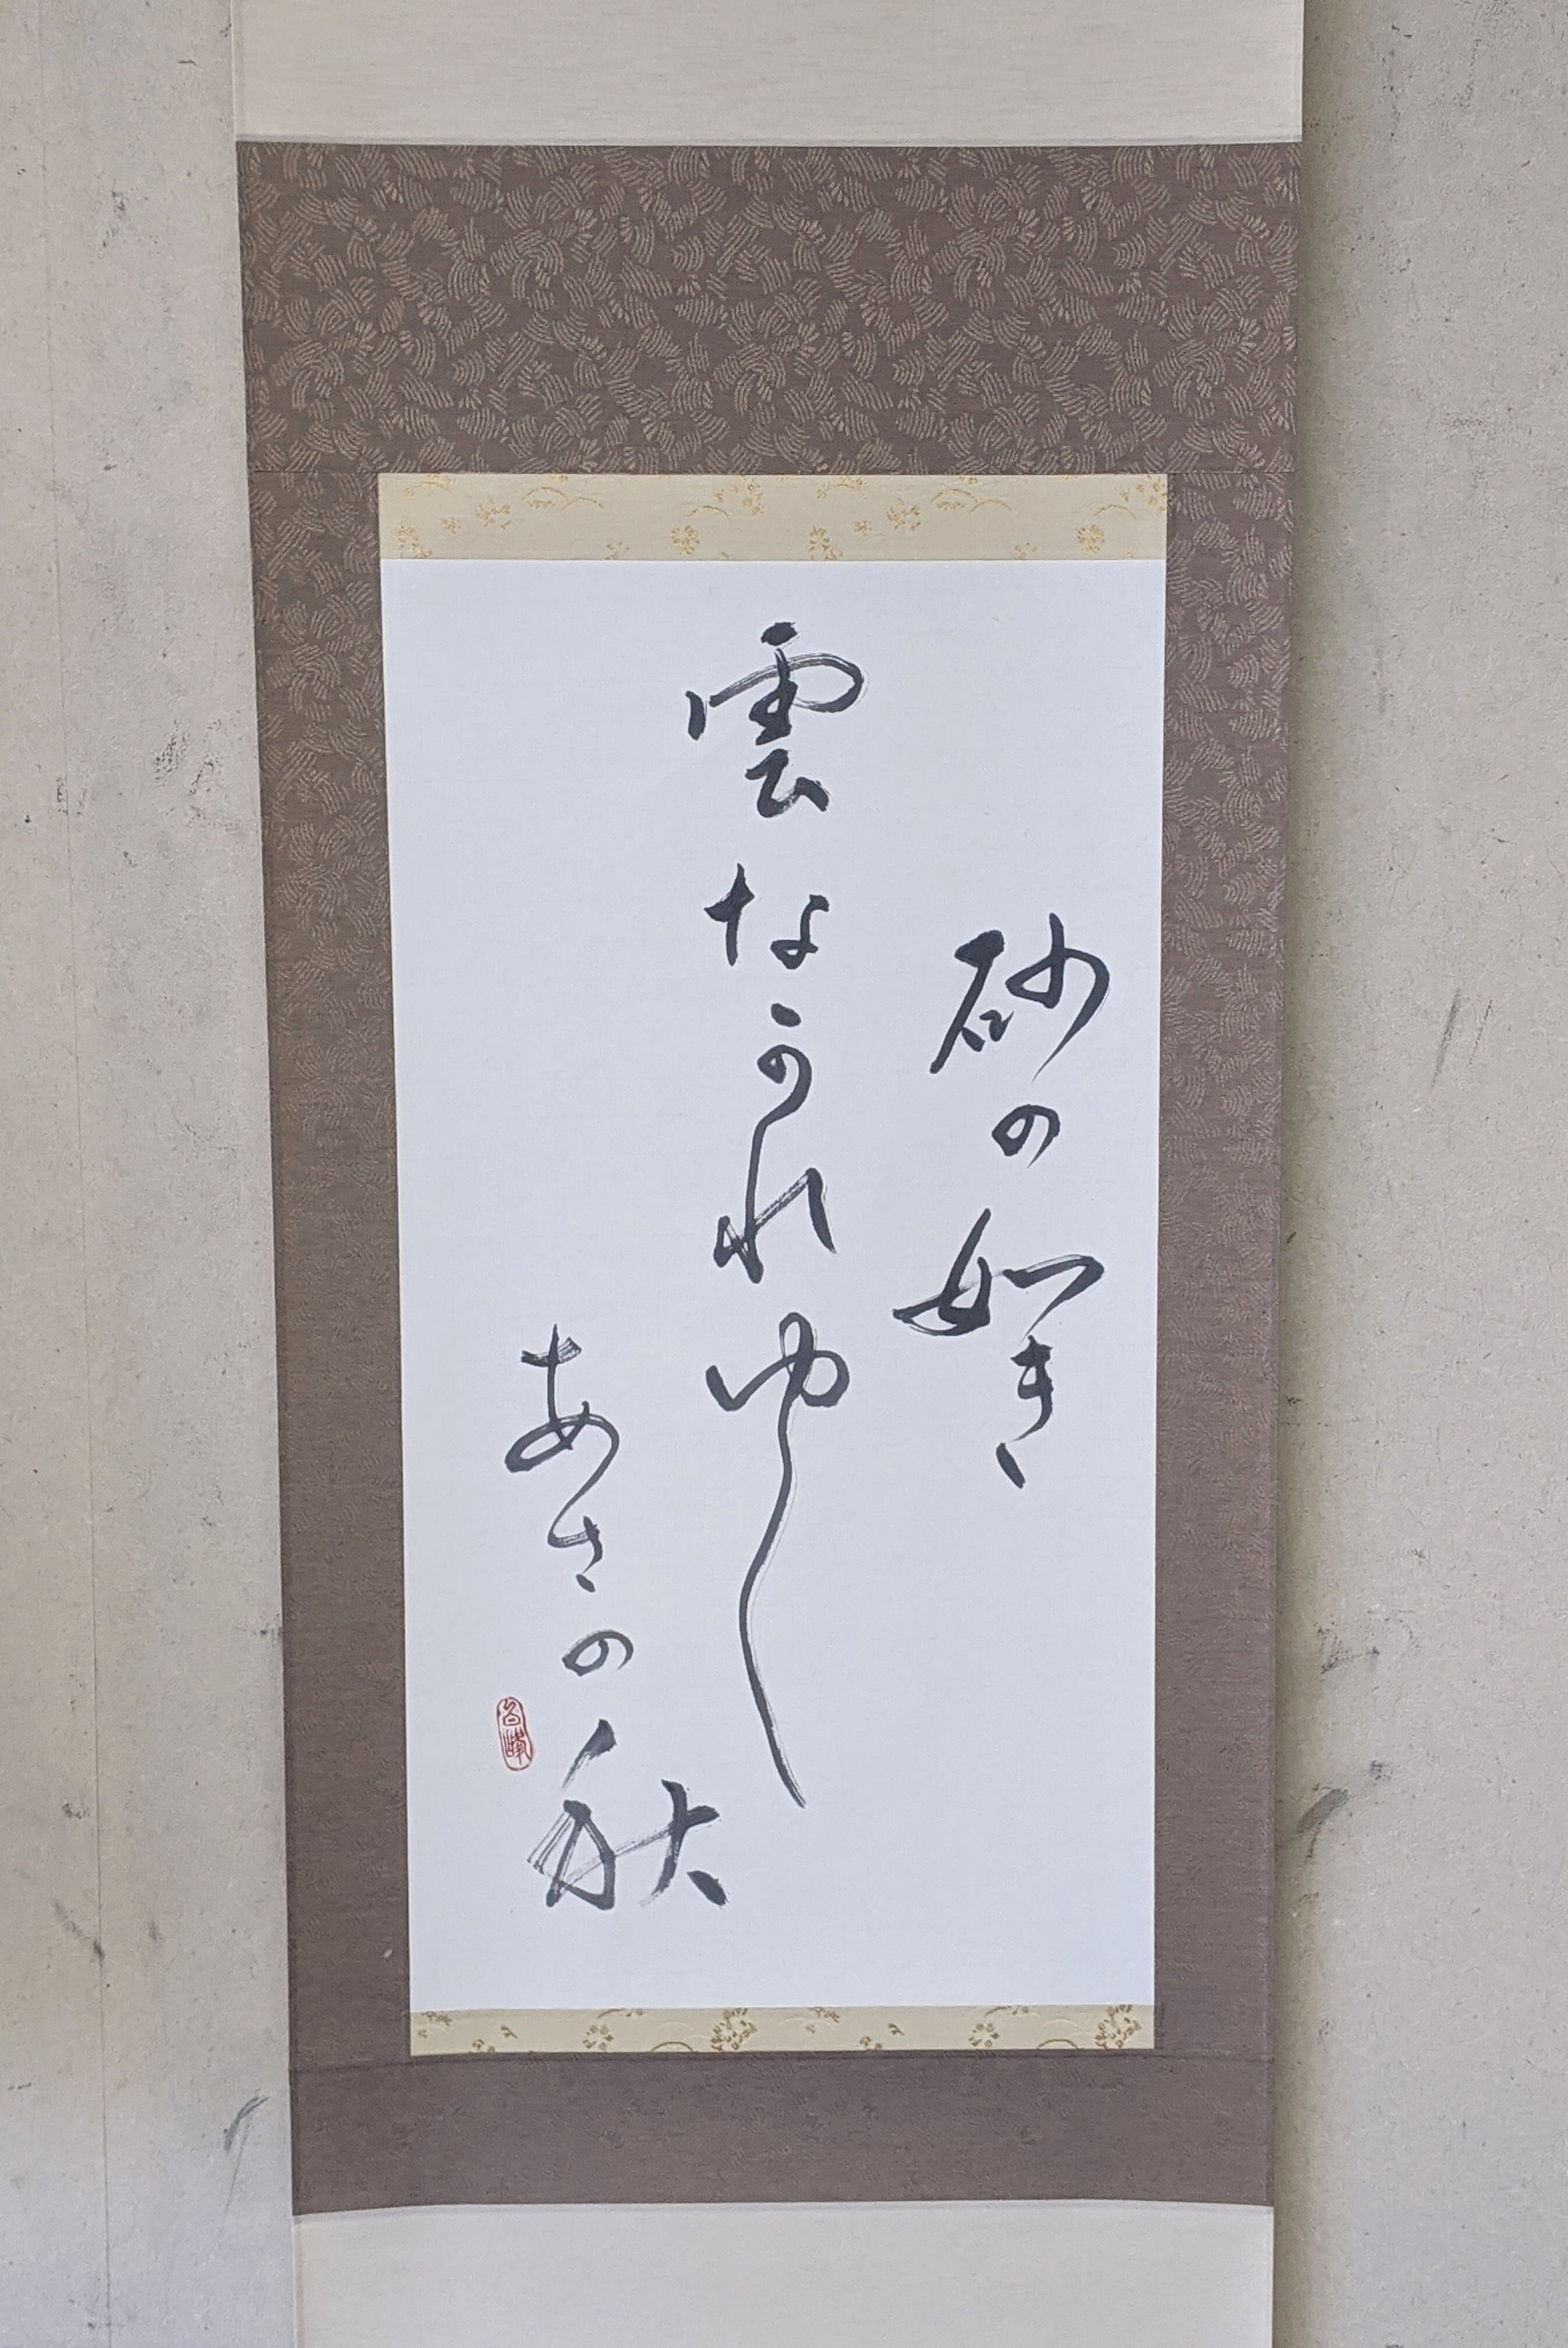 砂の如き
雲なかれゆく
あさの秋